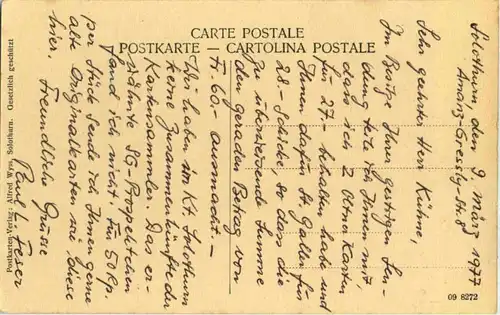 CARTE POSTALE
POSTKARTE – CARTOLINA POSTALE
Solothurn, den 9. März 1977
Amanz-Gressly-Str. 8
Sehr geehrter Herr Kühne,
Im Besitze Ihrer gestrigen Sen-
dung teile ich Ihnen mit,
dass ich 2 Oltner Karten
für 27.- behalten habe und
Ihnen dafür St. Galler für
28.- schicke, so dass die
zu überweisende Summe
den geraden Betrag von
Fr. 60.- ausmacht. –
Wir haben im Kt. Solothurn
keine Zusammenkünfte der
Kartensammler. Das er-
wähnte SG-Prospektchen
fand ich nicht für 50 Rp.
per Stück sende ich Ihnen gerne
alte Originalkarten wie diese
hier.
Freundliche Grüsse
Paul L. Feser
Postkarten-Verlag: Alfred Wyss, Solothurn. Gesetzlich geschützt
09 8272